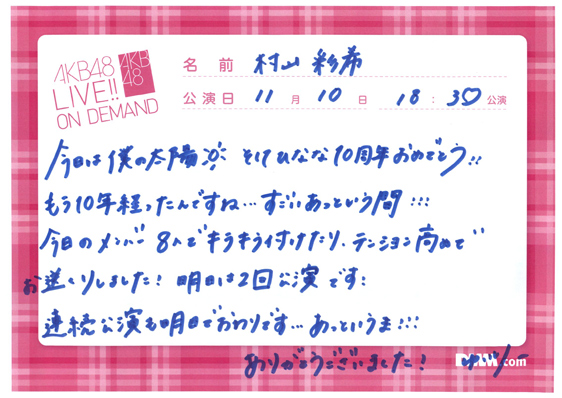 AKB48
LIVE!!
ON DEMAND
AKB
48
名前 村山 彩希
公演日 11月10日 18:30公演
今日は僕の太陽 そしてひなな10周年おめでとう!!
もう10年経ったんですね…すごいあっという間!!!
今日のメンバー8人でキラキラ付けたり、テンション高めで
お送りしました! 明日は2回公演です!
連続公演も明日でおわりです…あっというま!!!
ありがとうございました!
DMM.com